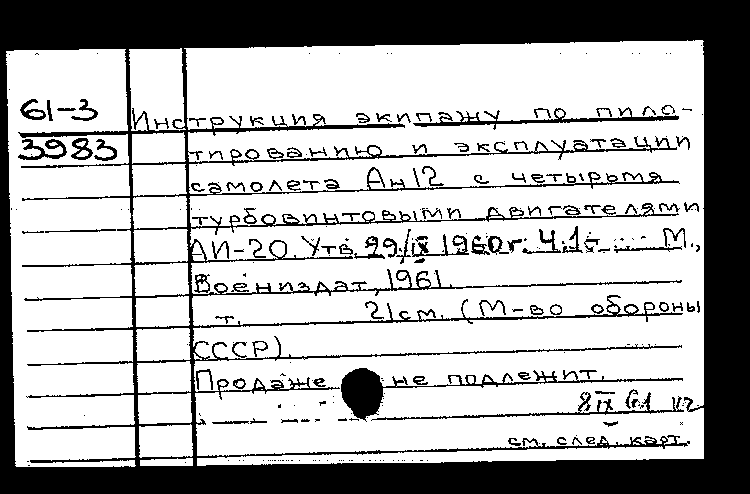 61-3 Инструкция экипажу по пило-
3983 тированию и эксплуатации
самолета Ан12 с четырьмя
турбовинтовыми двигателями
АИ-20. Утв. 29/IX 1960г. Ч.1- М.,
Воениздат, 1961.
т. 21см. (М-во обороны
СССР).
Продаже не подлежит.
8 IX 61
см. след. карт.